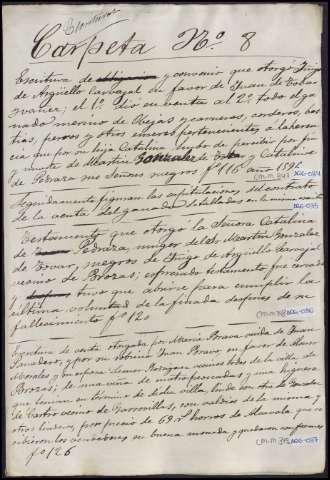 Escrituras
Carpeta N.º 8
Escritura de y convenio que otorgó Iñigo
de Argüello Carbajal en favor de Juan de Tobar
Ivañez; el 1º dio en venta al 2º todo el ga-
nado merino de obejas y carneros, corderos, bor-
ras, perros y otros enseres pertenecientes a la heren-
cia que por su hija Catalina hubo de percibir por fin
y muerte de Martin Gonzalez de y Catalina
de Pedraza sus Señores suegros fº 116 año 1592
Seguidamente figuran las capitulaciones del contrato
de la venta del ganado detallados en la misma
Testamento que otorgó la Señora Catalina
de Pedraza, muger del dr Martin Gonzalez
de Tovar, suegros de Iñigo de Argüello Carvajal
vecino de Brozas; espresado testamento fue cerrado
tuvo que abrirse para cumplir la
ultima voluntad de la finada despues de su
fallecimiento fº 120
Escritura de venta otorgada por Maria Brava viuda de Juan
Panadero, y por su sobrino Juan Bravo en favor de Alonso
Morales y su esposa Leonor Paragon vecinos todos de la villa de
Brozas; de una viña de matas perdidas y una higuera
que tenian en término de dicha villa, linde con otra de
de Castro vecino de Garrovillas, con valdios de la misma y
otros linderos, por precio de 69 rs horros de Alcavala, que re-
cibieron los vendedores en buena moneda y quedaron conformes
fº 126